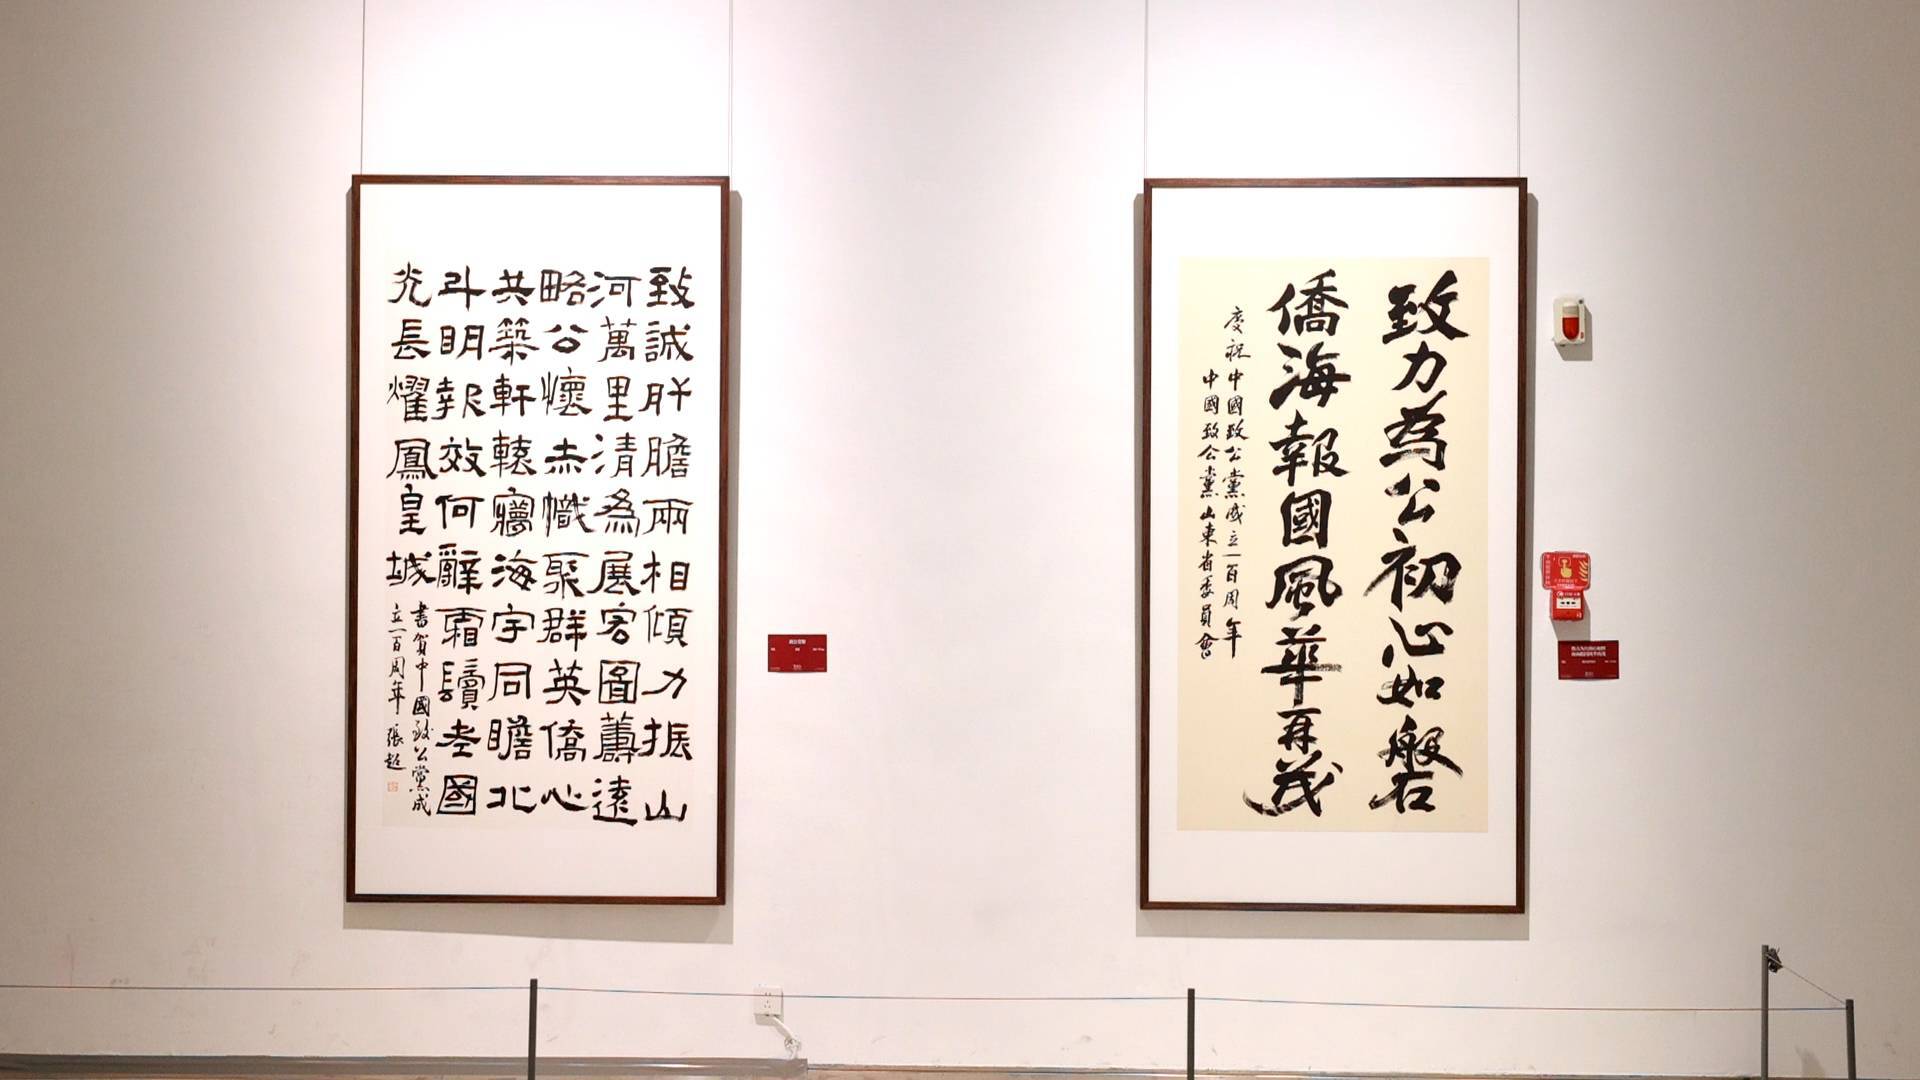 致誠肝膽兩相傾力振山
河萬里清為展宏圖籌遠
略公懷赤幟聚群英僑心
共築軒轅㝱海宇同瞻北
斗明報效何辭霜鬢老國
光長燿鳳皇城
書賀中國致公黨成
立一百周年 張超
致力為公初心如磐
僑海報國風華再茂
慶祝中國致公黨成立一百周年
中國致公黨山東省委員會